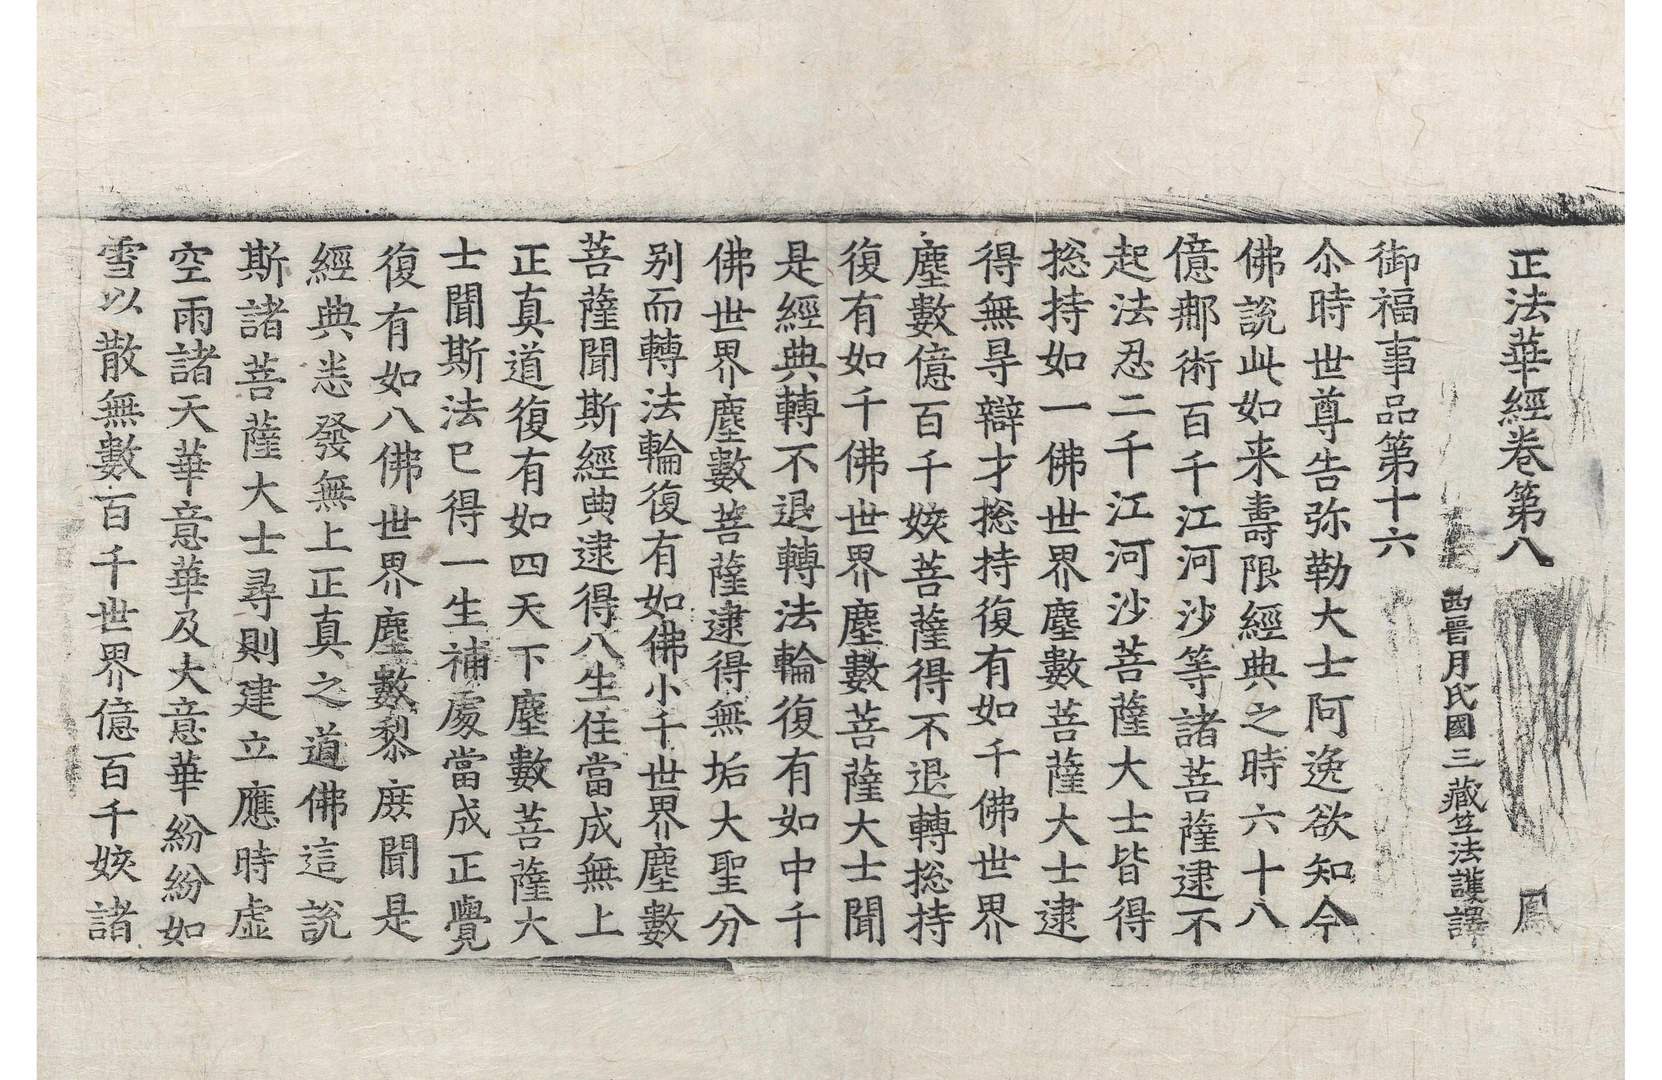 正法華經卷第八 鳳
西晉月氏國三藏竺法護譯
御福事品第十六
尒時世尊告弥勒大士阿逸欲知今
佛說此如来壽限經典之時六十八
億郍術百千江河沙等諸菩薩逮不
起法忍二千江河沙菩薩大士皆得
揔持如一佛世界塵數菩薩大士逮
得無㝵辯才揔持復有如千佛世界
塵數億百千姟菩薩得不退轉揔持
復有如千佛世界塵數菩薩大士聞
是經典轉不退轉法輪復有如中千
佛世界塵數菩薩逮得無垢大聖分
别而轉法輪復有如佛小千世界塵數
菩薩聞斯經典逮得八生住當成無上
正真道復有如四天下塵數菩薩大
士聞斯法已得一生補處當成正覺
復有如八佛世界塵數黎庶聞是
經典悉發無上正真之道佛這說
斯諸菩薩大士尋則建立應時虛
空雨諸天華意華及大意華紛紛如
雪以散無數百千世界億百千姟諸